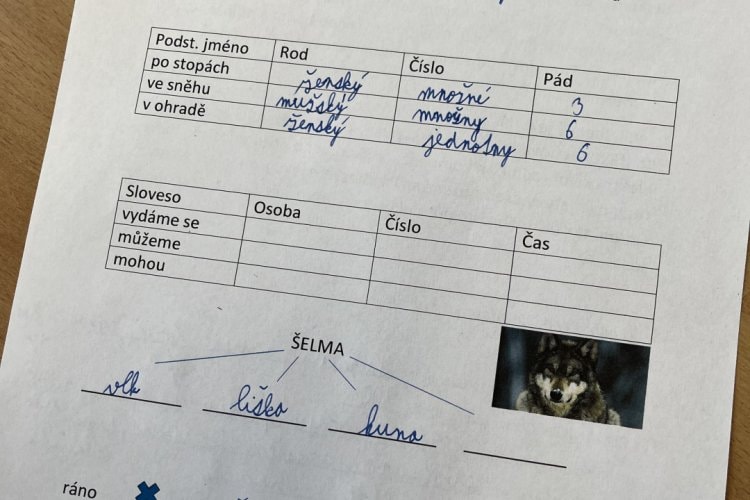 Podst. jméno Rod Číslo Pád
po stopách ženský množné 3
ve sněhu mužský množny 6
v ohradě ženský jednotny 6
Sloveso Osoba Číslo Čas
vydáme se
můžeme
mohou
ŠELMA
vlk liška kuna
ráno